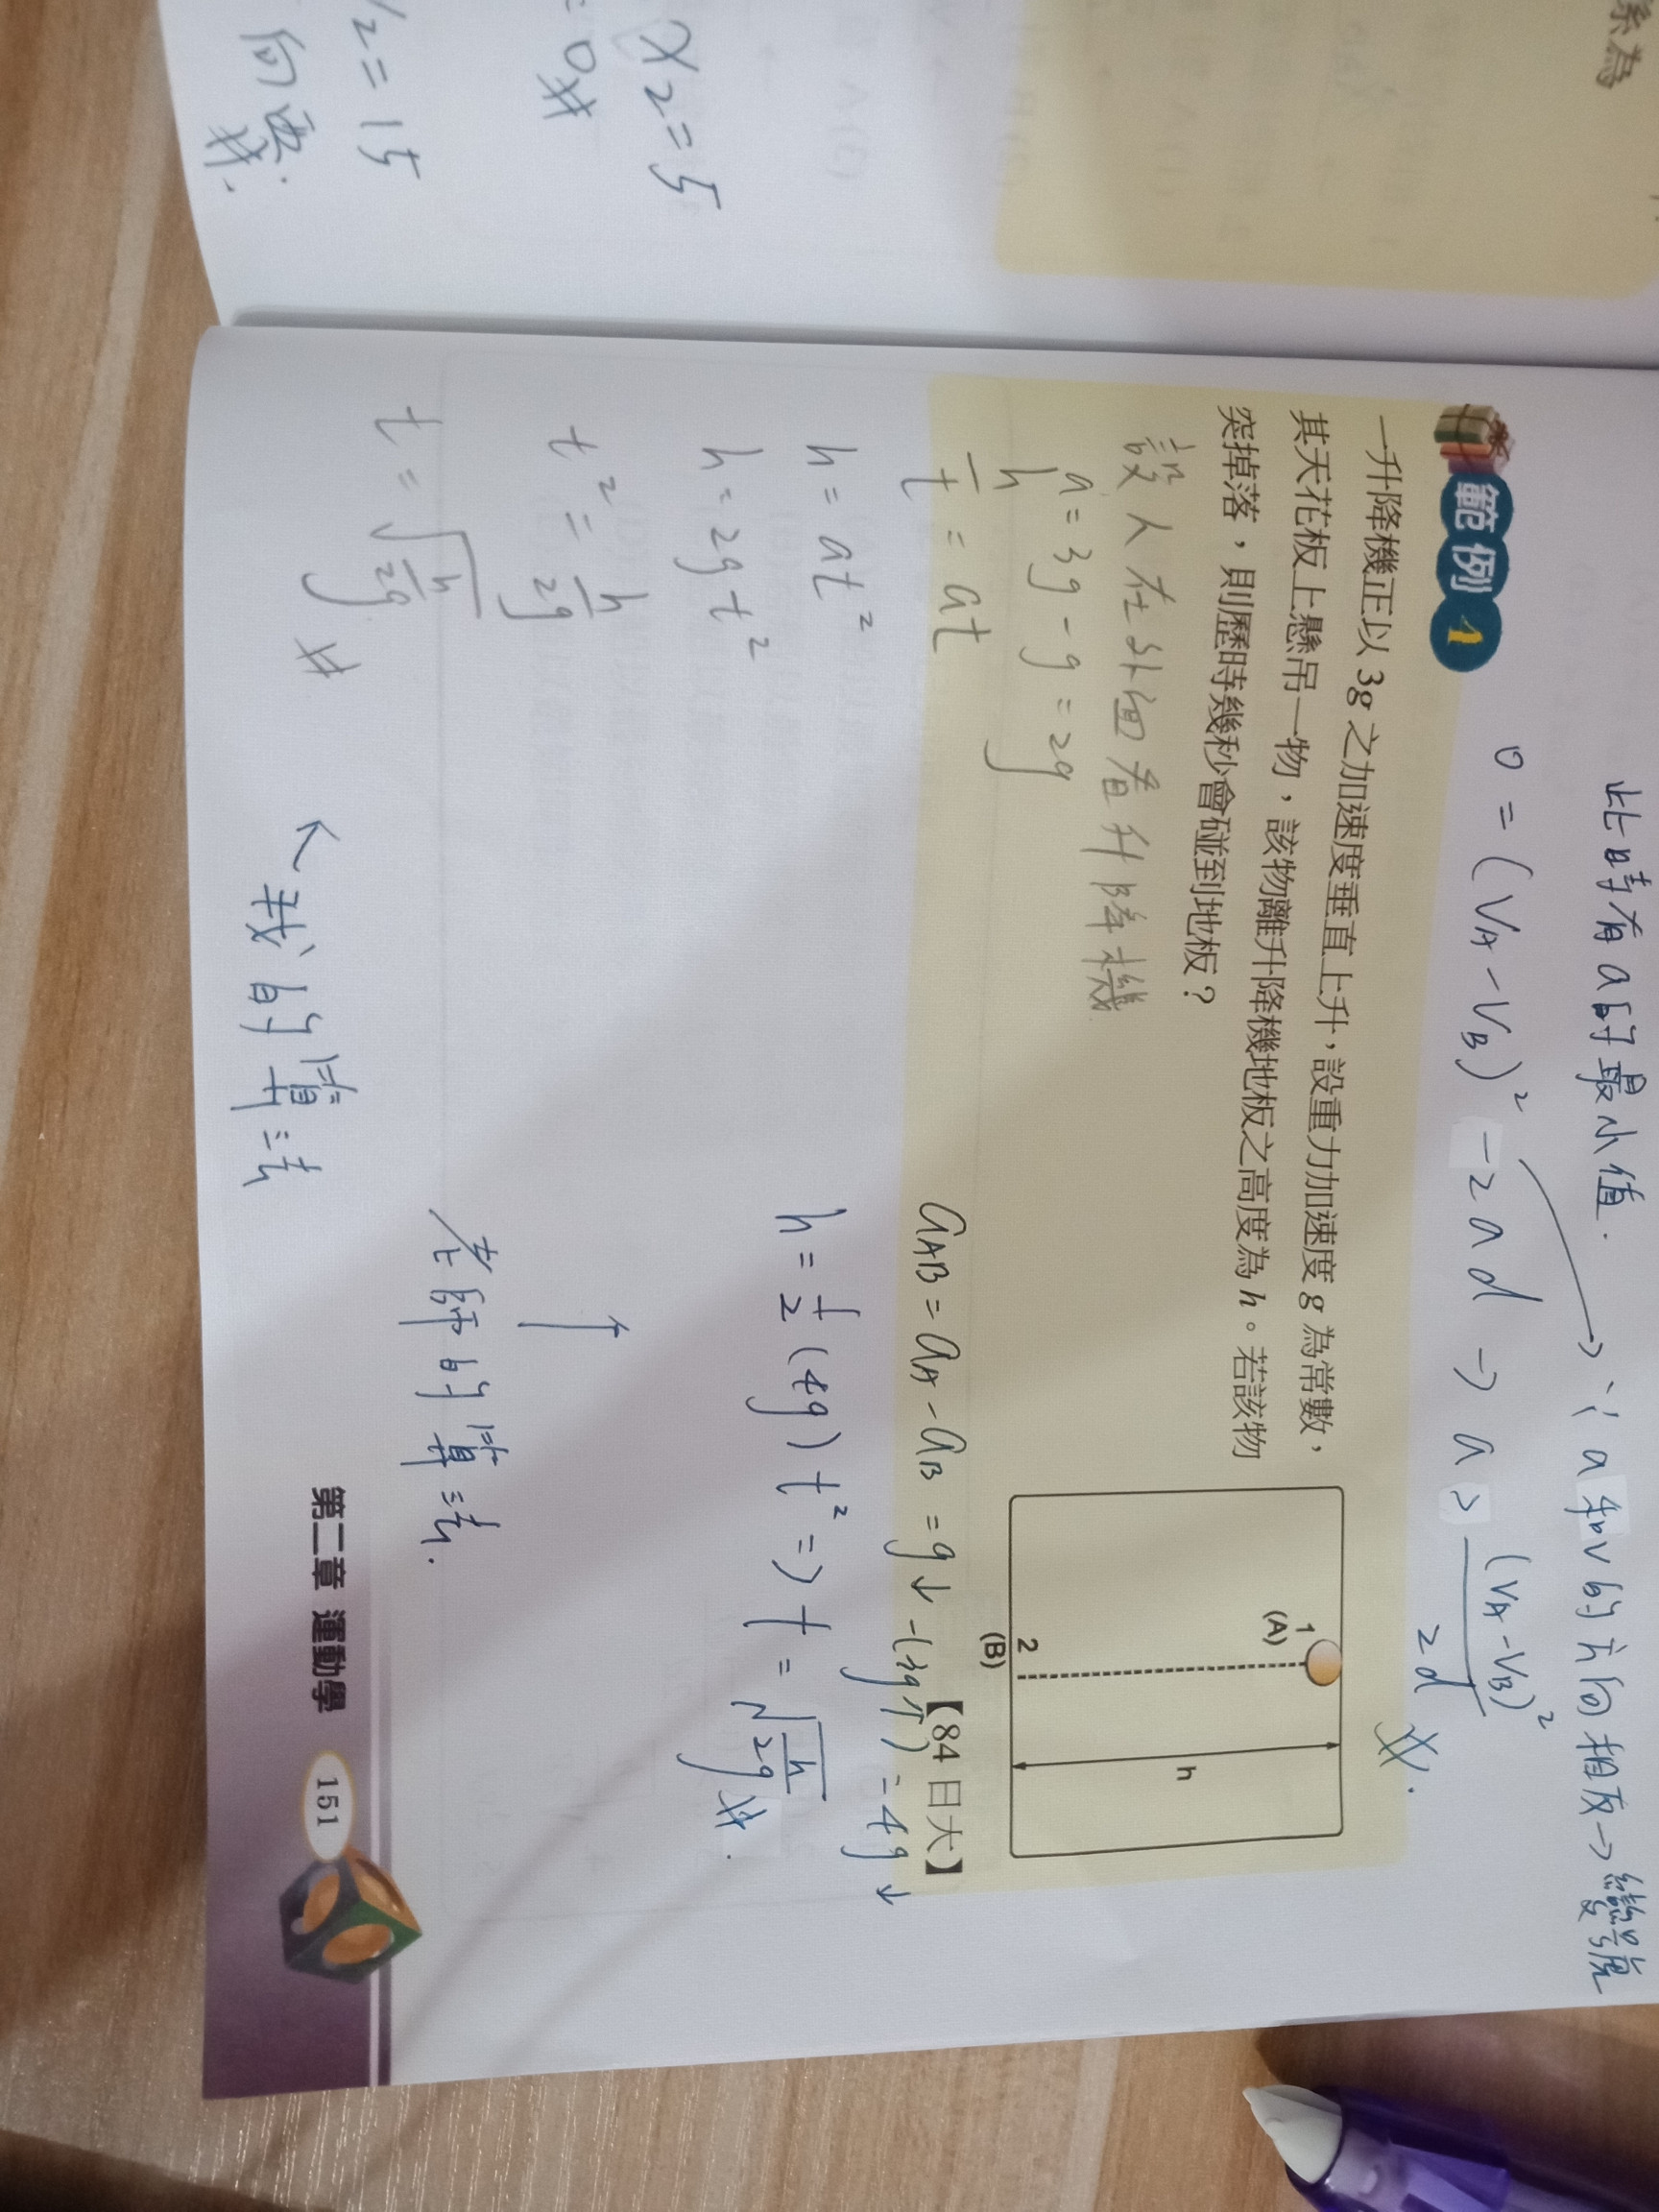 係為
x₂=5
=0#
/2=15
向西#.
此時有a的最小值.
∵a和v的方向相反→變號
0=(VA-VB)²-2ad → a > (VA-VB)²/2d #.
範例 1
一升降機正以 3g 之加速度垂直上升，設重力加速度 g 為常數，
其天花板上懸吊一物，該物離升降機地板之高度為 h。若該物
突掉落，則歷時幾秒會碰到地板？
【84 日大】
1
(A)
2
(B)
h
設人在外面看升降機
a=3g-g=2g
h/t=at
h=at²
h=2gt²
t²=h/2g
t=√(h/2g) #
↖我的算法
aAB=aA-aB=g↓-(3g↑)=4g↓
h=1/2(4g)t² => t=√(h/2g) #.
↑
老師的算法.
第二章 運動學 151